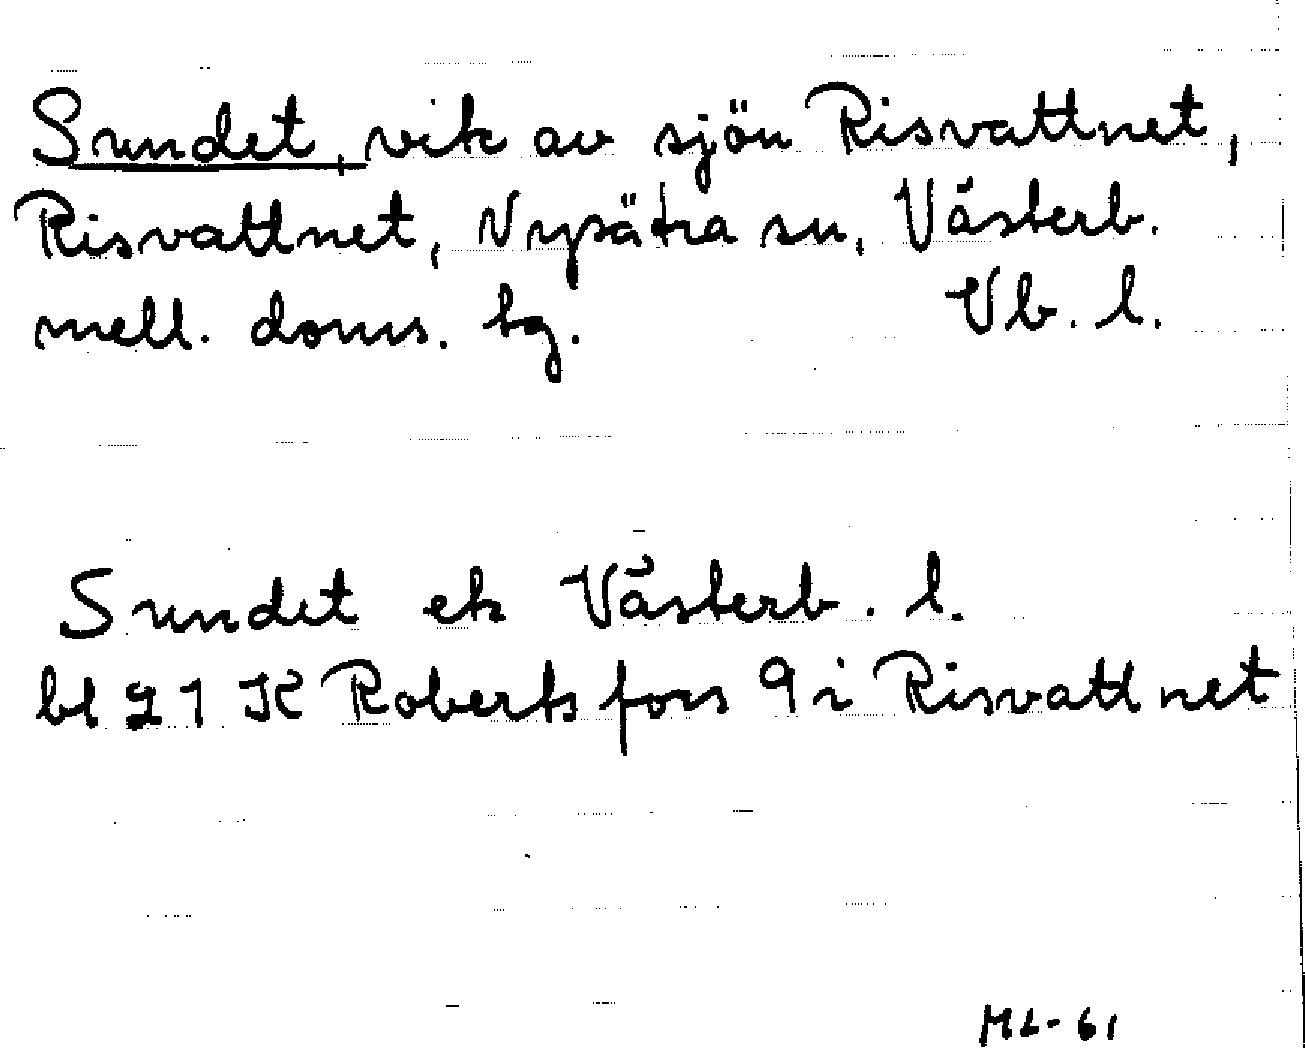 Sundet, vik av sjön Risvattnet,
Risvattnet, Nysätra sn, Västerb.
mell. doms. tg. Vb. l.
Sundet ek Västerb. l.
bl 21 K Robertsfors 9 i Risvattnet
ML-61